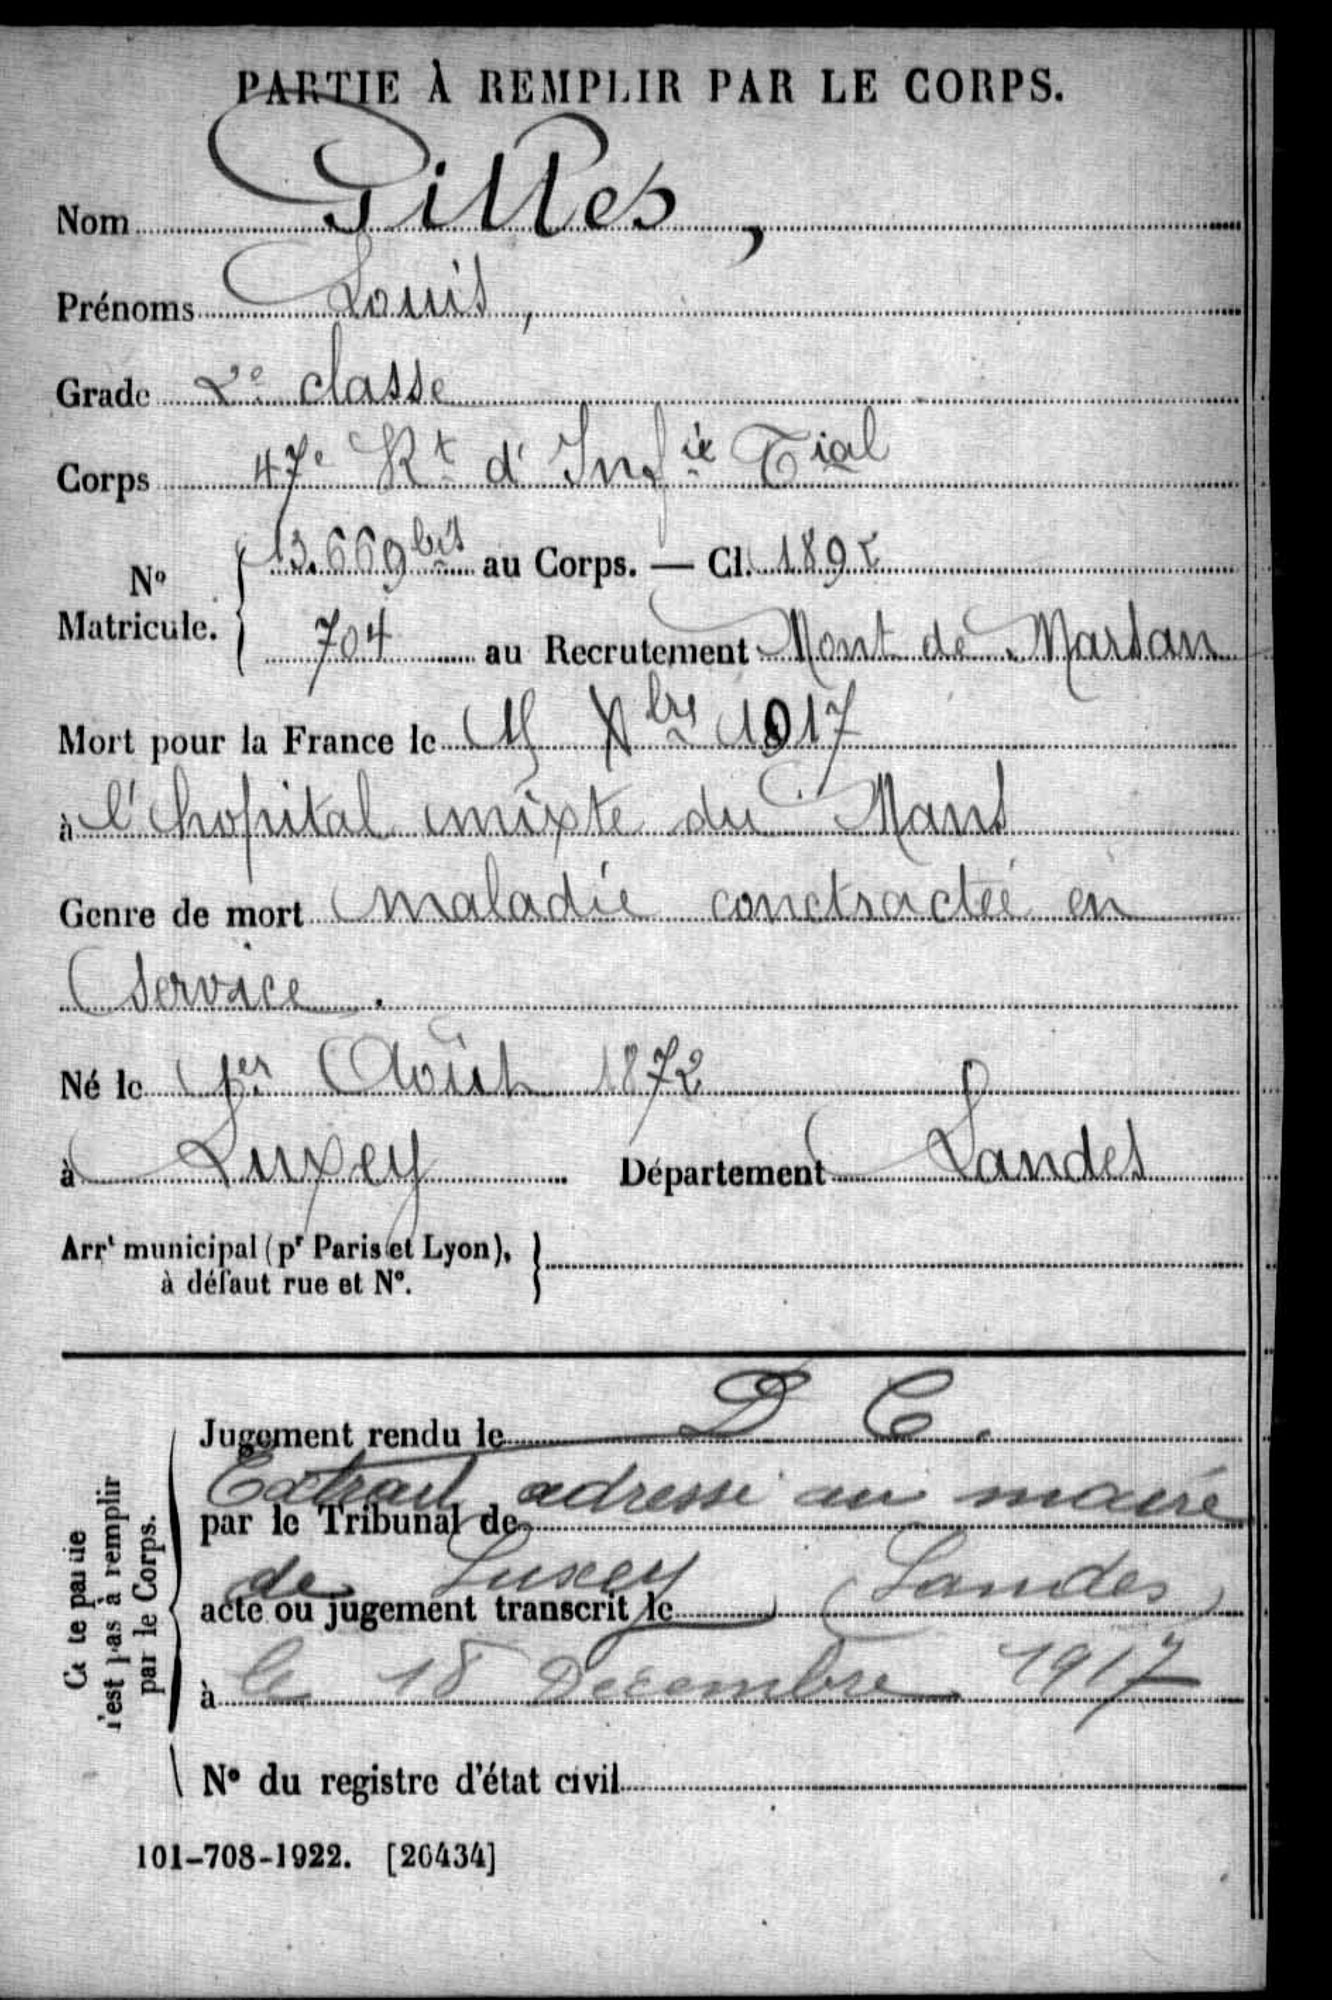 PARTIE À REMPLIR PAR LE CORPS.
Nom Gilles,
Prénoms Louis,
Grade 2e classe
Corps 47e Rt d'Infie Tial
No Matricule. 13.669 bis au Corps. — Cl. 1892
704 au Recrutement Mont de Marsan
Mort pour la France le Xbre 1917
à l'hopital mixte du Mans
Genre de mort maladie conctractée en
service.
Né le 1er Août 1872
à Luxey Département Landes
Arrt municipal (pr Paris et Lyon), à défaut rue et No.
Cette partie n'est pas à remplir par le Corps.
Jugement rendu le D C.
Extrait adressé au maire
par le Tribunal de
de Luxey (Landes)
acte ou jugement transcrit le
à le 18 Décembre 1917
No du registre d'état civil
101-708-1922. [26434]